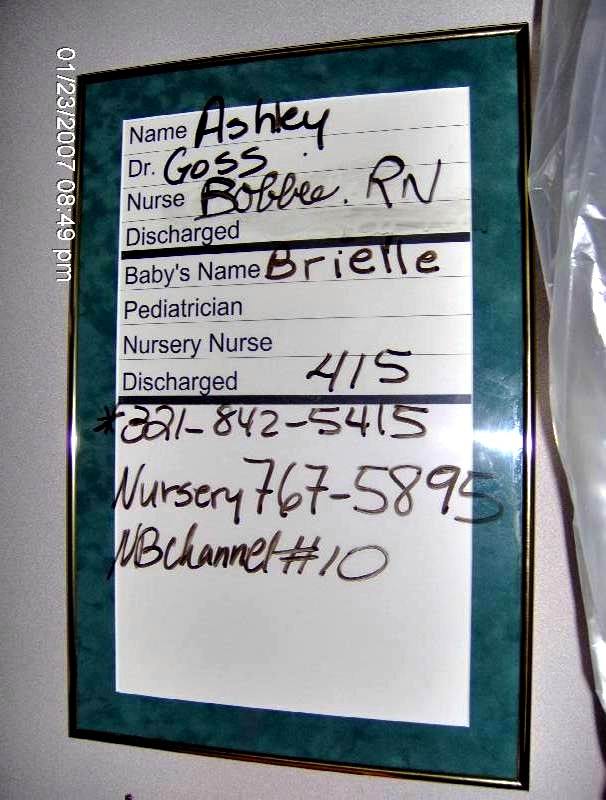 01/23/2007 08:49 pm
Name Ashley
Dr. Goss
Nurse Bobbee. RN
Discharged
Baby's Name Brielle
Pediatrician
Nursery Nurse
Discharged 415
*321-842-5415
Nursery 767-5895
NB channel #10